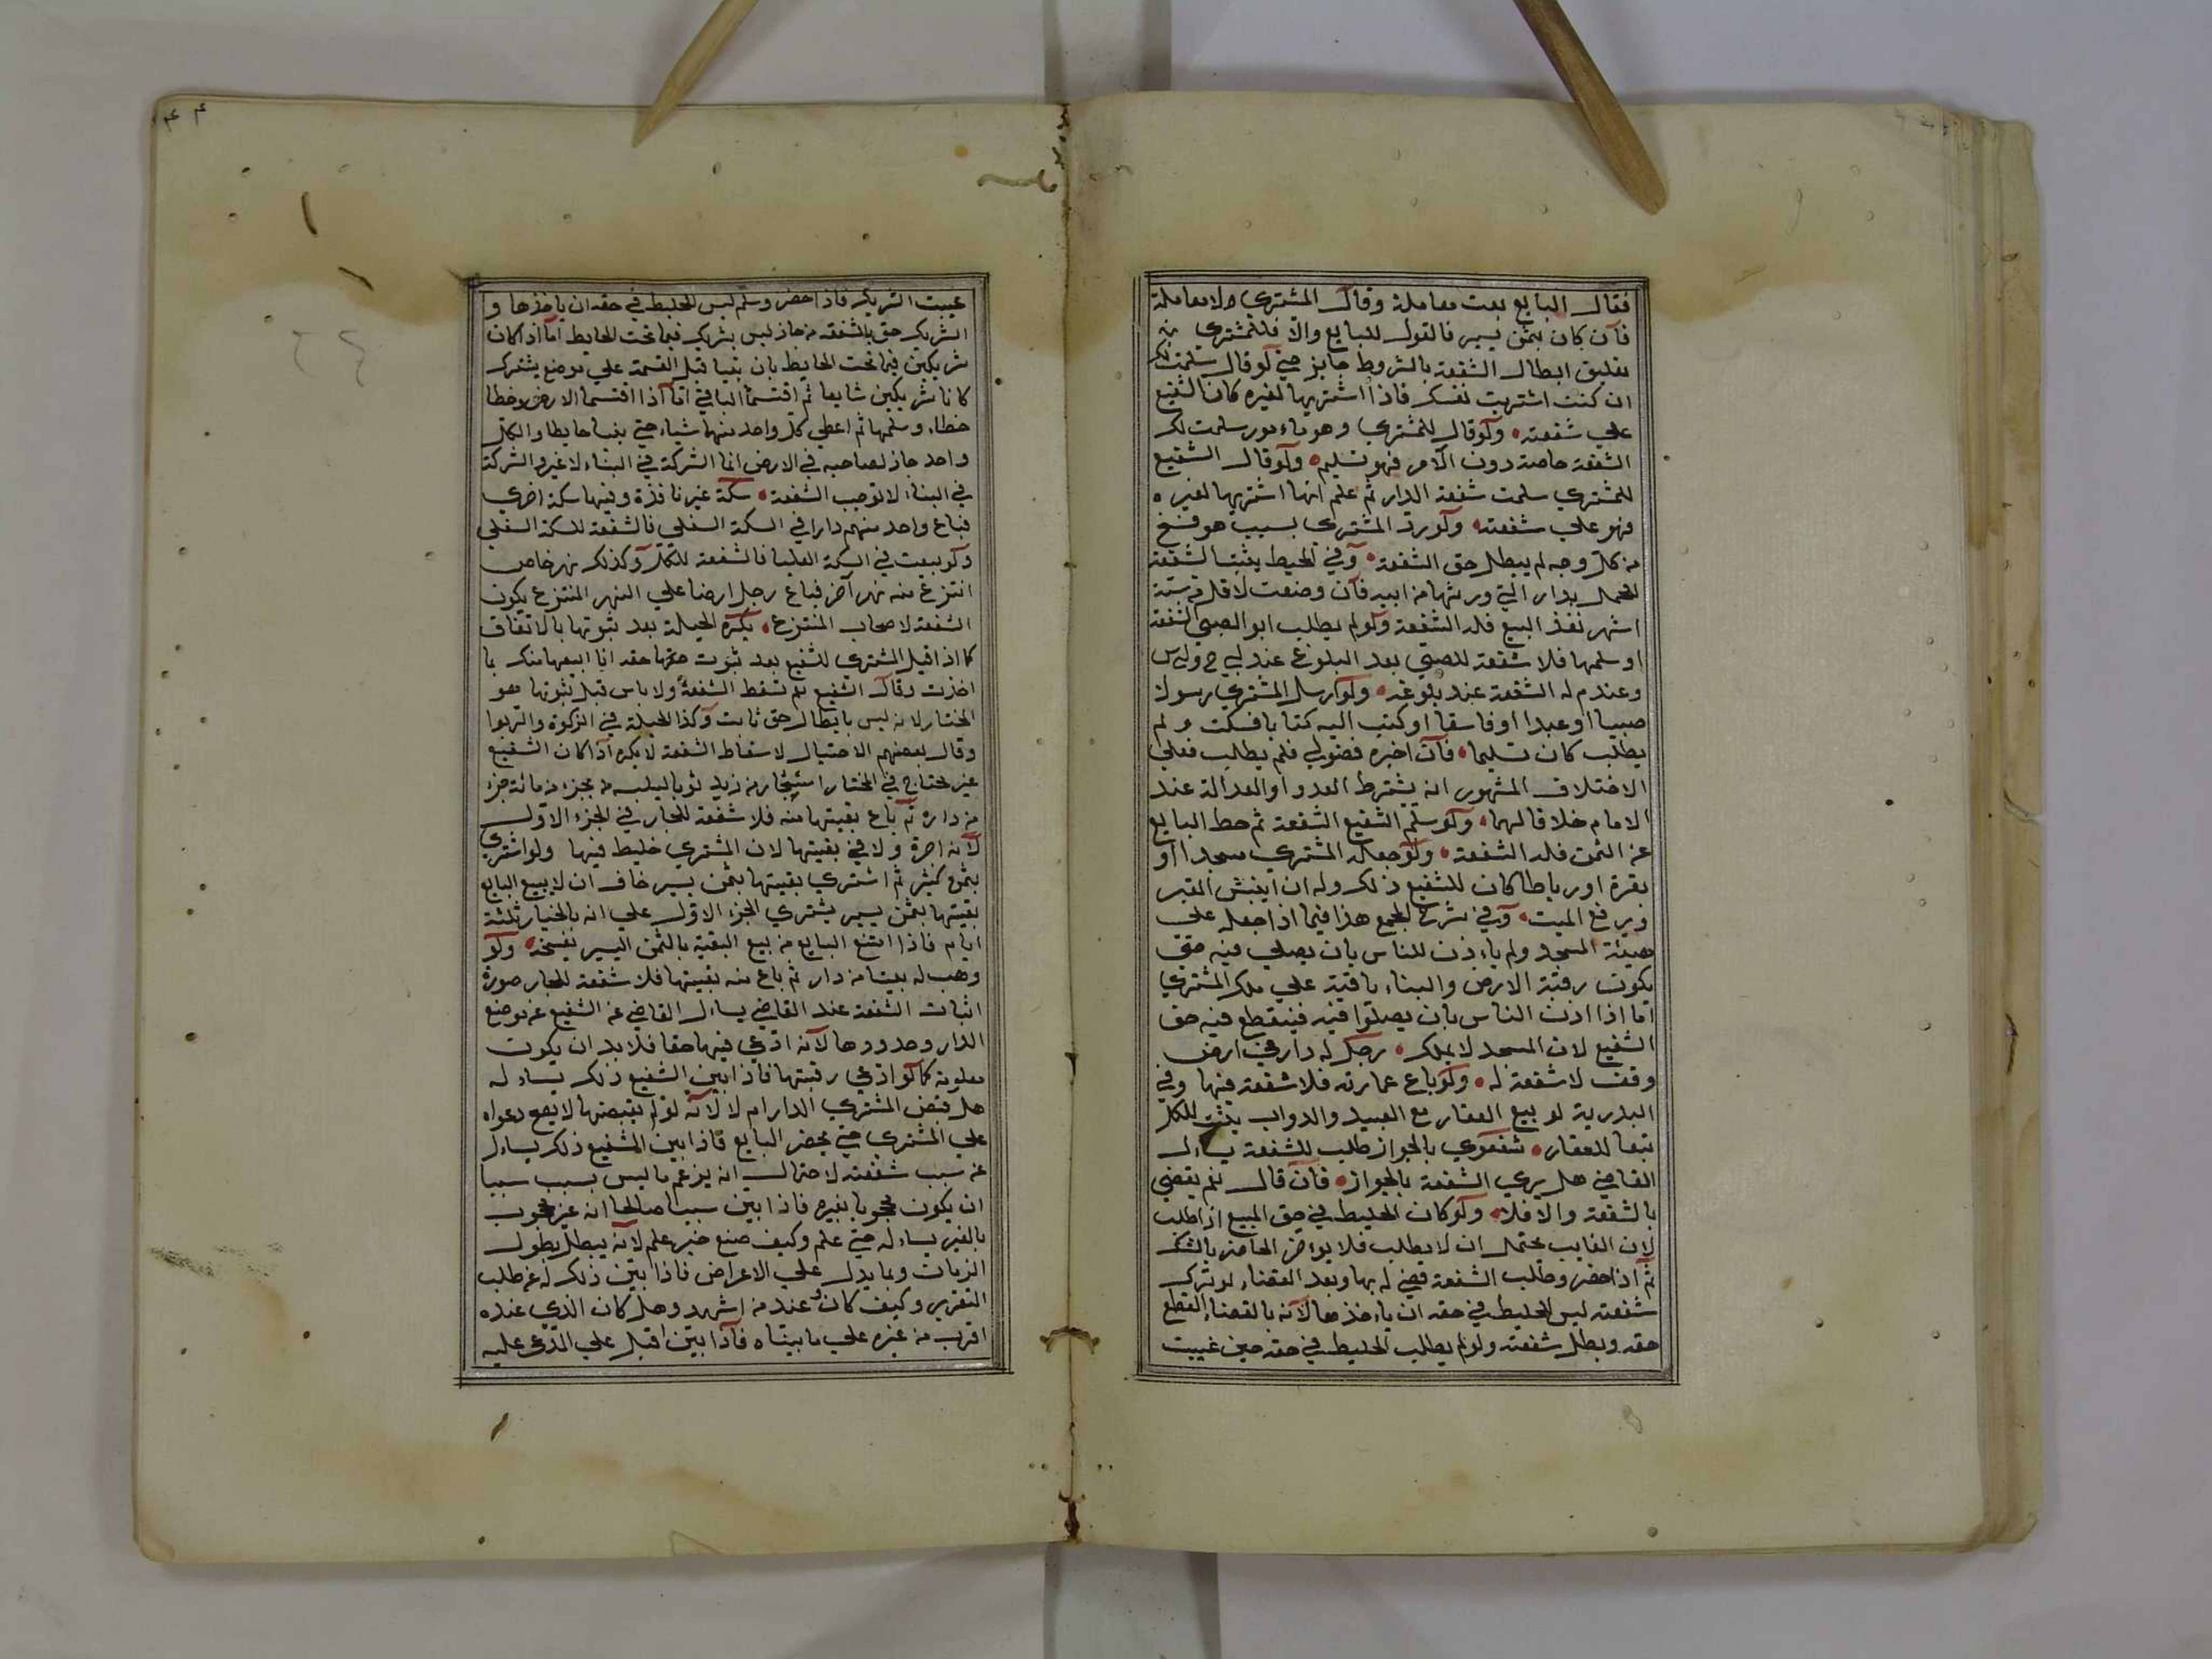 فقال البايع بعت معاملة وقال المشتري لا معاملة
فان كان بثمن يسير فالقول للبايع والا فللمشتري
تعليق ابطال الشفعة بالشروط جايز حتى لو قال سلمت لك
ان كنت اشتريت لنفسك فاذا اشتريها لغيره كان الشفيع
علي شفعته ولو قال للمشتري وهو ماءمور سلمت لك
الشفعة خاصة دون الآمر فهو تسليم ولو قال الشفيع
للمشتري سلمت شفعة الدار ثم علم انها اشتريها لغيره
فهو علي شفعته ولو رد المشتري بسبب هو فسخ
من كل وجه لم يبطل حق الشفعة وفي المحيط يثبت الشفعة
للحمل بدار التي ورثها من ابيه فان وضعت لاقل من ستة
اشهر نفذ البيع فله الشفعة ولو لم يطلب ابو الصبي الشفعة
او سلمها فلا شفعة للصبي بعد البلوغ عند ابي ح وابي س
وعند م له الشفعة عند بلوغه ولو ارسل المشتري رسولا
صبيا او عبدا او فاسقا او كتب اليه كتابا فسكت ولم
يطلب كان تسليما فان اخبره فضولي فلم يطلب فعلي
الاختلاف المشهور انه يشترط العدد او العدالة عند
الامام خلافا لهما ولو سلم الشفيع الشفعة ثم حط البايع
عن الثمن فله الشفعة ولو جعل المشتري مسجدا او
مقبرة او رباطا كان للشفيع ذلك وله ان ينبش القبر
ويرفع الميت وفي شرح المجمع هذا فيما اذا جعله علي
هيئة المسجد ولم ياءذن للناس بان يصلي فيه حتي
يكون رقبة الارض والبناء باقية علي ملك المشتري
اما اذا اذن الناس بان يصلوا فيه فينقطع فيه حق
الشفيع لان المسجد لا يملك رجل له دار في ارض
وقف لا شفعة له ولو باع عمارته فلا شفعة فيها وفي
البدرية لو بيع العقار مع العبيد والدواب يثبت للكل
تبعا للعقار شفعوي بالجواز طلب للشفعة يساءل
القاضي هل يري الشفعة بالجواز فان قال نعم يقضي
بالشفعة والا فلا ولو كان الخليط في حق المبيع اذا طلب
لان الغايب يحتمل ان لا يطلب فلا يواخر الحاضر بالشك
ثم اذا حضر وطلب الشفعة قضي له بها وبعد القضاء لو ترك
شفعته ليس للخليط في حقه ان ياءخذها لانه بالقضاء انقطع
حقه وبطل شفعته ولو لم يطلب الخليط في حقه حين غيبت
غيبت الشريك فاذا حضر وسلم ليس للخليط في حقه ان ياخذها و
الشريك حق بالشفعة من جار ليس بشريك فيما تحت الحايط اما اذا كان
شريكين فيما تحت الحايط بان بنيا قبل القسمة علي موضع يشترك
كانا شريكين شايعا ثم اقتسما الباقي اما اذا اقتسما الارض وخطا
خطاء وسلمها ثم اعطي كل واحد منهما شياء حتى بنيا حايطا والكل
واحد جار لصاحبه في الارض انما الشركة في البناء لا غير والشركة
في البناء لا توجب الشفعة سكة غير نافذة وفيها سكة اخري
فباع واحد منهم دارا في السكة السفلي فالشفعة للسكة السفلي
ولو بيعت في السكة العليا فالشفعة للكل وكذلك نهر خاص
انتزع منه نهر آخر فباع رجل ارضا علي النهر المنتزع يكون
الشفعة لاصحاب المنتزع يكره الحيلة بعد ثبوتها بالاتفاق
كما اذا قيل المشتري للشفيع بعد ثبوت حقها حقه انا ابيعها منك بما
اخذت وقال الشفيع نعم تسقط الشفعة ولا باس قبل ثبوتها هو
المختار لانه ليس بابطال حق ثابت وكذا الحيلة في الزكوة والربوا
وقال بعضهم الاحتيال لاسقاط الشفعة لا يكره اذا كان الشفيع
غير محتاج في المختار استيجار من زيد ثوبا ليلبسه بجزء من مائة جزء
من داره ثم باع بقيتها منه فلا شفعة للجار في الجزء الاول
لانه اجرة ولا في بقيتها لان المشتري خليط فيها ولو اشتري
بثمن كثير ثم اشتري بقيتها بثمن يسير خاف ان لا يبيع البايع
بقيتها بثمن يسير يشتري الجزء الاول علي انه بالخيار ثلثة
ايام فاذا امتنع البايع من بيع البقية بالثمن اليسير يفسخه ولو
وهب له بيتا من دار ثم باع منه بقيتها فلا شفعة للجار صورة
اثبات الشفعة عند القاضي يساءل القاضي عن الشفيع عن موضع
الدار وحدودها لانه ادعي فيها حقا فلا بد ان يكون
معلومة كما لو ادعي رقبتها فاذا بين الشفيع ذلك يساءله
هل قبض المشتري الدار ام لا لانه لو لم يقبضها لا يصح دعواه
علي المشتري حتي يحضر البايع فاذا بين الشفيع ذلك يساءل
عن سبب شفعته لاحتمال انه يزعم ما ليس بسبب سببا
ان يكون محجوبا بغيره فاذا بين سببا صالحا انه غير محجوب
بالغير يساءله حتي علم وكيف صنع حين علم لانه يبطل بطول
الزمان وبما يدل علي الاعراض فاذا بين ذلك له عن طلب
التقرير وكيف كان وعند من اشهد وهل كان الذي عنده
اقرب من غيره علي ما بيناه فاذا بين اقبل علي المدعي عليه